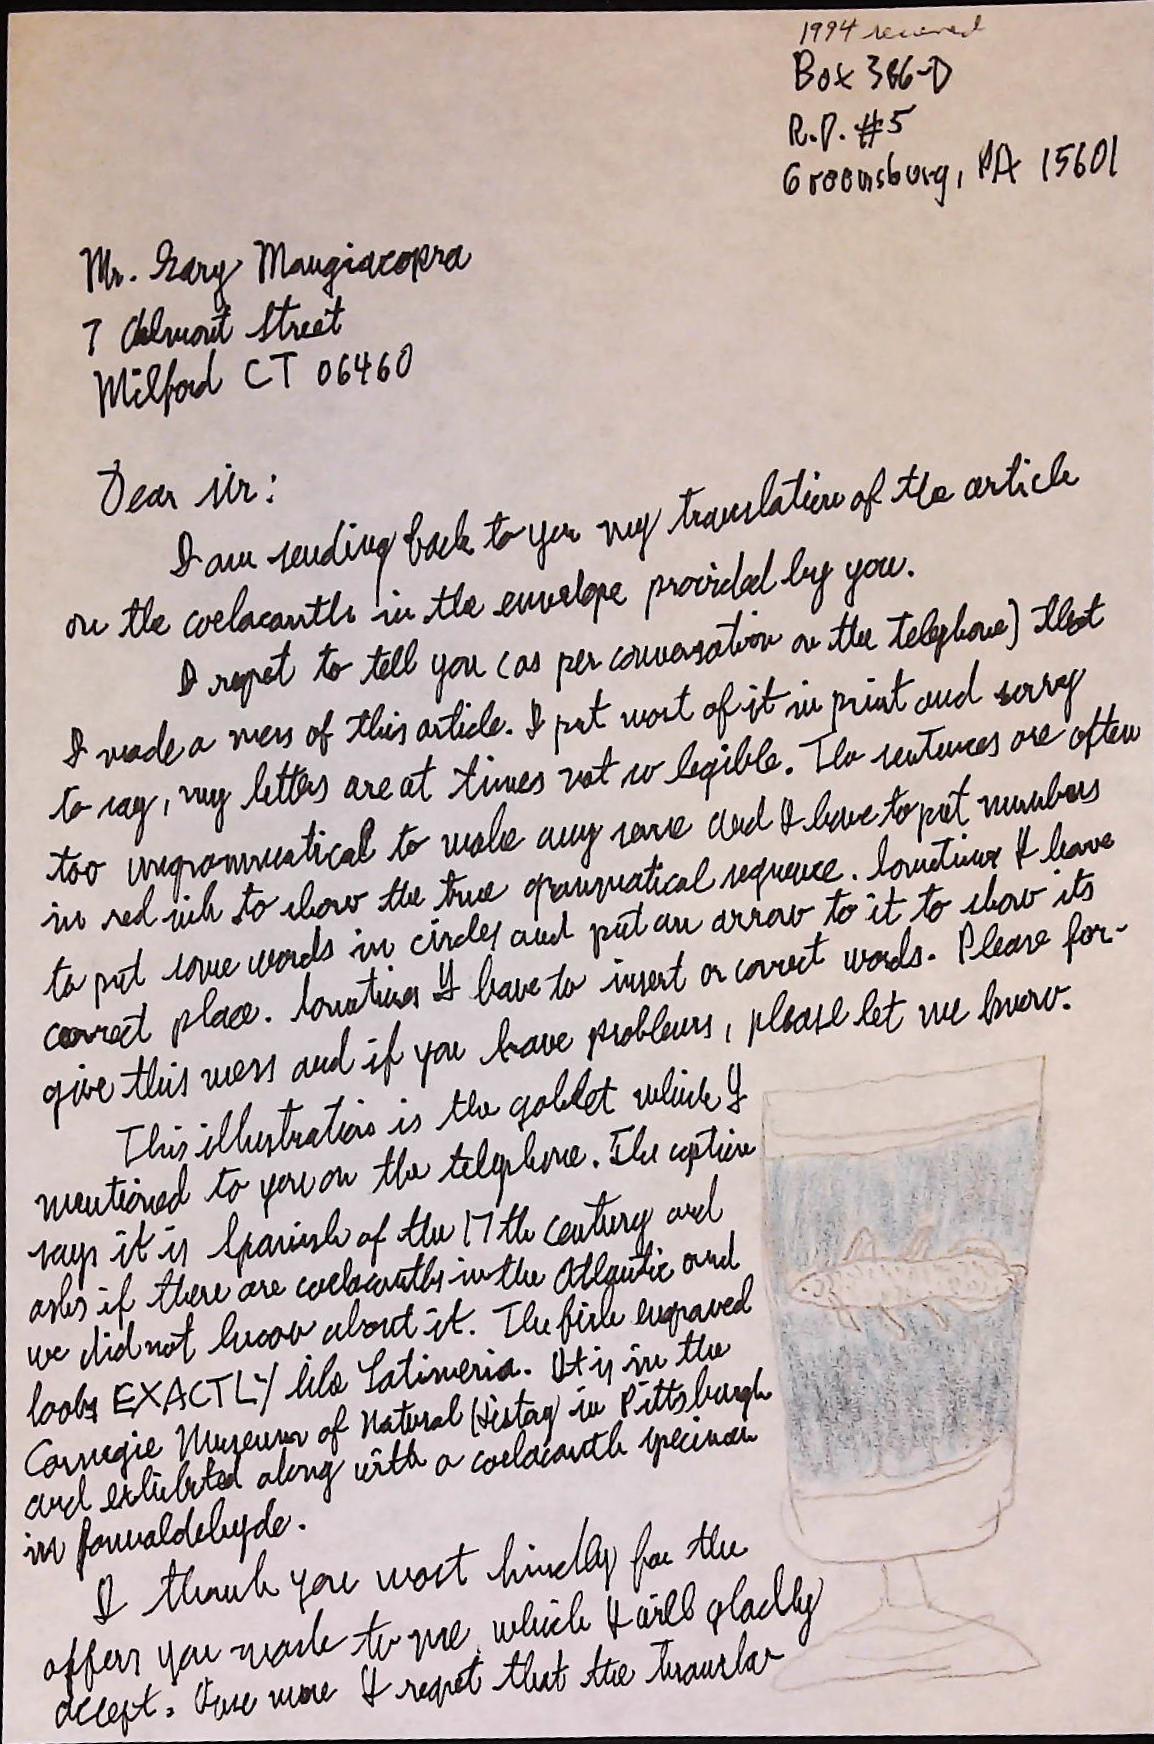 1994 received
Box 386-D
R.D. #5
Greensburg, PA 15601
Mr. Gary Mangiacopra
7 Street
Milford CT 06460
Dear Sir:
I am sending back to you my translation of the article
on the coelacanth in the envelope provided by you.
I regret to tell you (as per conversation on the telephone) that
I made a mess of this article. I put most of it in print and sorry
to say, my letters are at times not so legible. The sentences are often
too ungrammatical to make any sense and I have to put numbers
in red ink to show the true grammatical sequence. Sometimes I have
to put some words in circles and put an arrow to it to show its
correct place. Sometimes I have to insert or correct words. Please for-
give this mess and if you have problems, please let me know.
This illustration is the goblet which I
mentioned to you on the telephone. The caption
says it is Spanish of the 17th century and
asks if there are coelacanths in the Atlantic and
we did not know about it. The fish engraved
looks EXACTLY like Latimeria. It is in the
Carnegie Museum of Natural History in Pittsburgh
and exhibited along with a coelacanth specimen
in formaldehyde.
I thank you most kindly for the
offers you made to me which I will gladly
accept. Once more I regret that the translat